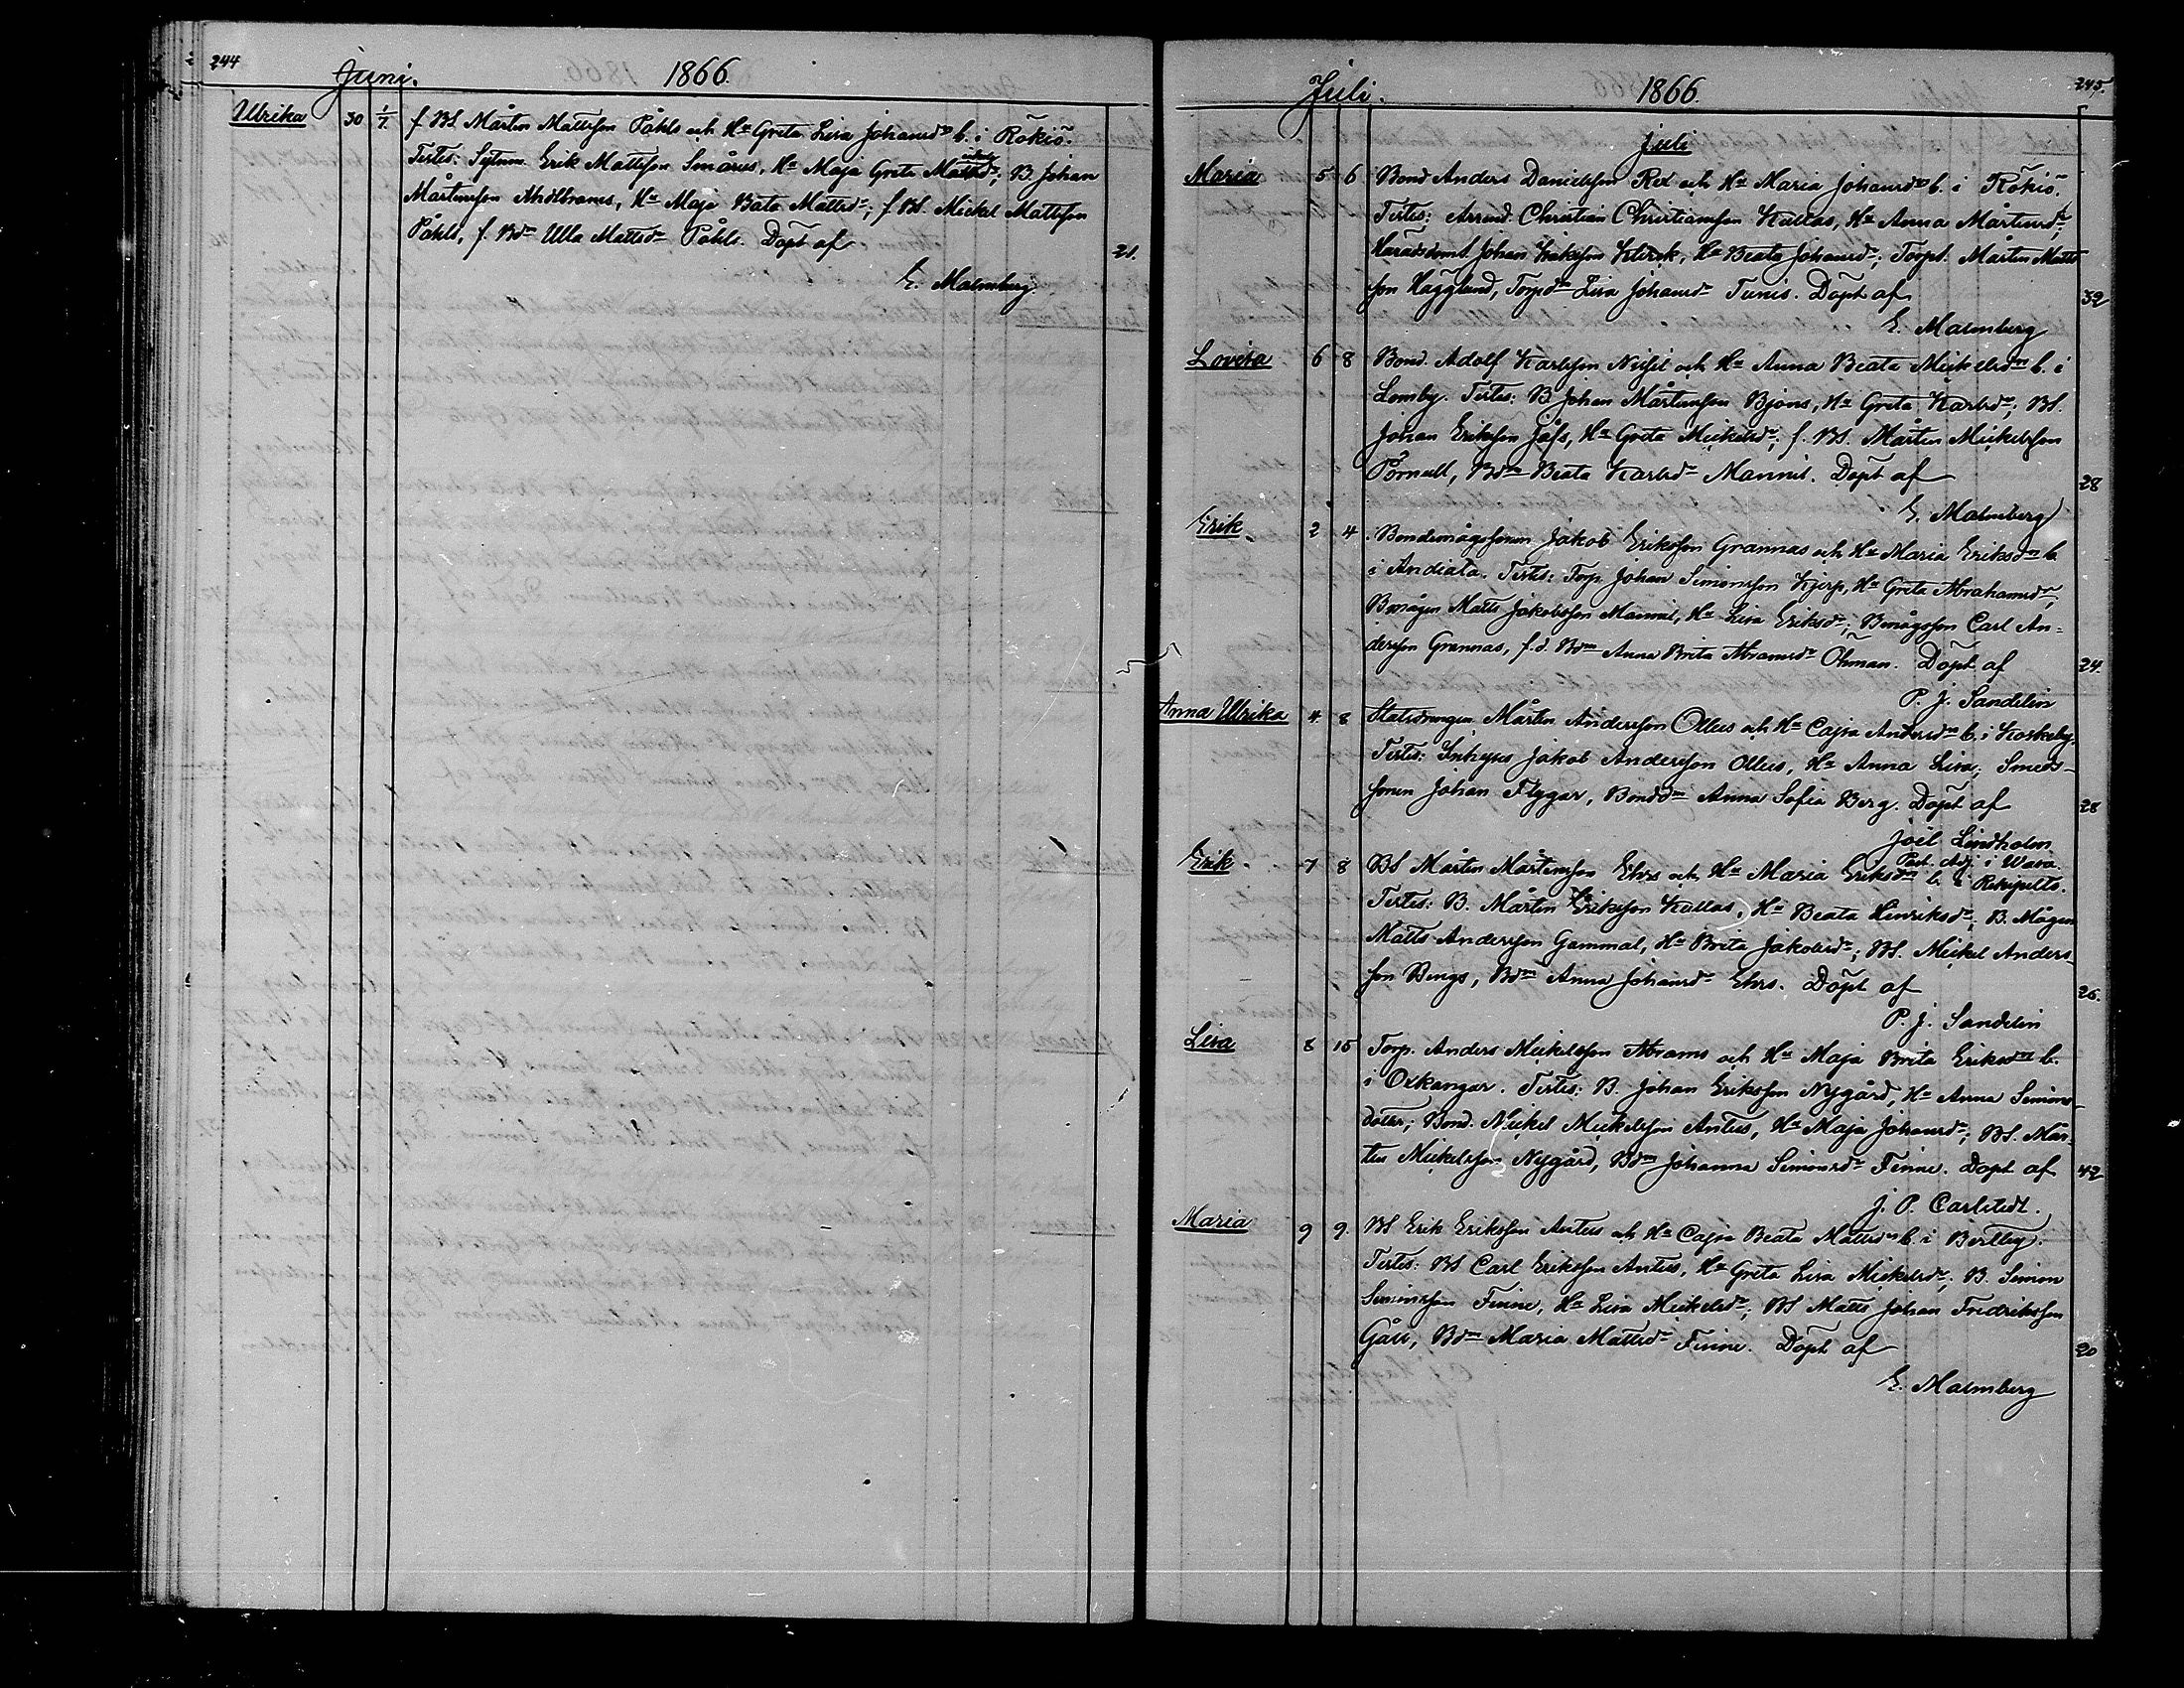 244
Juni. 1866.
Ulrika 30 1/7. f. BS. Mårten Mattsson Påhls och Hu Greta Lisa Johansdr b. i Rökiö.
Testes: Sytnm. Erik Mattsson Smårus, Hu Maja Greta Mattsdr; B. Johan
Mårtensson Andtbrames, Hu Maja Bata Mattsdr; f. BS. Mickel Mattsson
Påhls, f. Bdr Ulla Mattsdr Påhls. Döpt af 21.
E. Malmberg.
245.
Juli. 1866.
Juli
Maria 5 6 Bond Anders Danielsson Rex och Hu Maria Johansdr b. i Rökiö.
Testes: Arrend. Christian Christiansson Kullas, Hu Anna Mårtensdr;
Häradsdomt Johan Isaksson Klerck, Hu Beata Johansdr; Torpt. Mårten Matts
son Hägglund, Torpdr Lisa Johansdr Tunis. Döpt af 32
E. Malmberg
Lovisa 6 8 Bond. Adolf Karlsson Nissil och Hu Anna Beata Mickelsdr b. i
Lomby. Testes: B. Johan Mårtensson Björs, Hu Greta Karlsdr; BS.
Johan Eriksson Jåfs, Hu Greta Mickelsdr; f. BS. Mårten Mickelsson
Pörnull, Bdr Beata Karlsdr Mannil. Döpt af 28
E. Malmberg
Erik 2 4 Bondemågssonen Jakob Eriksson Grannas och Hu Maria Eriksdr b.
i Andiata. Testes: Torp. Johan Simonsson Kjerp, Hu Greta Abrahamsdr;
Bmågen Matts Jakobsson Mannil, Hu Lisa Eriksdr; Bmågsson Carl An=
dersson Grannas, f.d. Bdr Anna Brita Abramsdr Öhman. Döpt af 24.
P. J. Sandelin
Anna Ulrika 4 8 Statsdrängen Mårten Andersson Ollus och Hu Cajsa Andersdr b. i Koskeby.
Testes: Inhyses Jakob Andersson Ollus, Hu Anna Lisa; Smeds-
sonen Johan Flygar, Bonddr Anna Sofia Berg. Döpt af 28
Joël Lindholm
Past. Adj. i Wasa.
Erik 7 8 BS Mårten Mårtensson Ehrs och Hu Maria Eriksdr b. i Rekipelto.
Testes: B. Mårten Eriksson Kullas, Hu Beata Henriksdr; B. Mågen
Matts Andersson Gammal, Hu Brita Jakobsdr; BS. Mickel Anders-
son Bengs, Bdr Anna Johansdr Ehrs. Döpt af 26.
P. J. Sandelin
Lisa 8 15 Torp. Anders Mickelsson Abrams och Hu Maja Brita Eriksdr b.
i Oxkangar. Testes: B. Johan Eriksson Nygård, Hu Anna Simons-
dotter; Bond. Mickel Mickelsson Antus, Hu Maja Johansdr; BS. Mår-
ten Mickelsson Nygård, Bdr Johanna Simonsdr Finne. Döpt af 42
J. P. Carlstedt.
Maria 9 9. BS Erik Eriksson Antus och Hu Cajsa Beata Mattsdr b. i Bertby.
Testes: BS Carl Eriksson Antus, Hu Greta Lisa Mickelsdr; B. Simon
Simonsson Finne, Hu Lisa Mickelsdr; BS Matts Johan Fredriksson
Gårr, Bdr Maria Mattsdr Finne. Döpt af 20
E. Malmberg